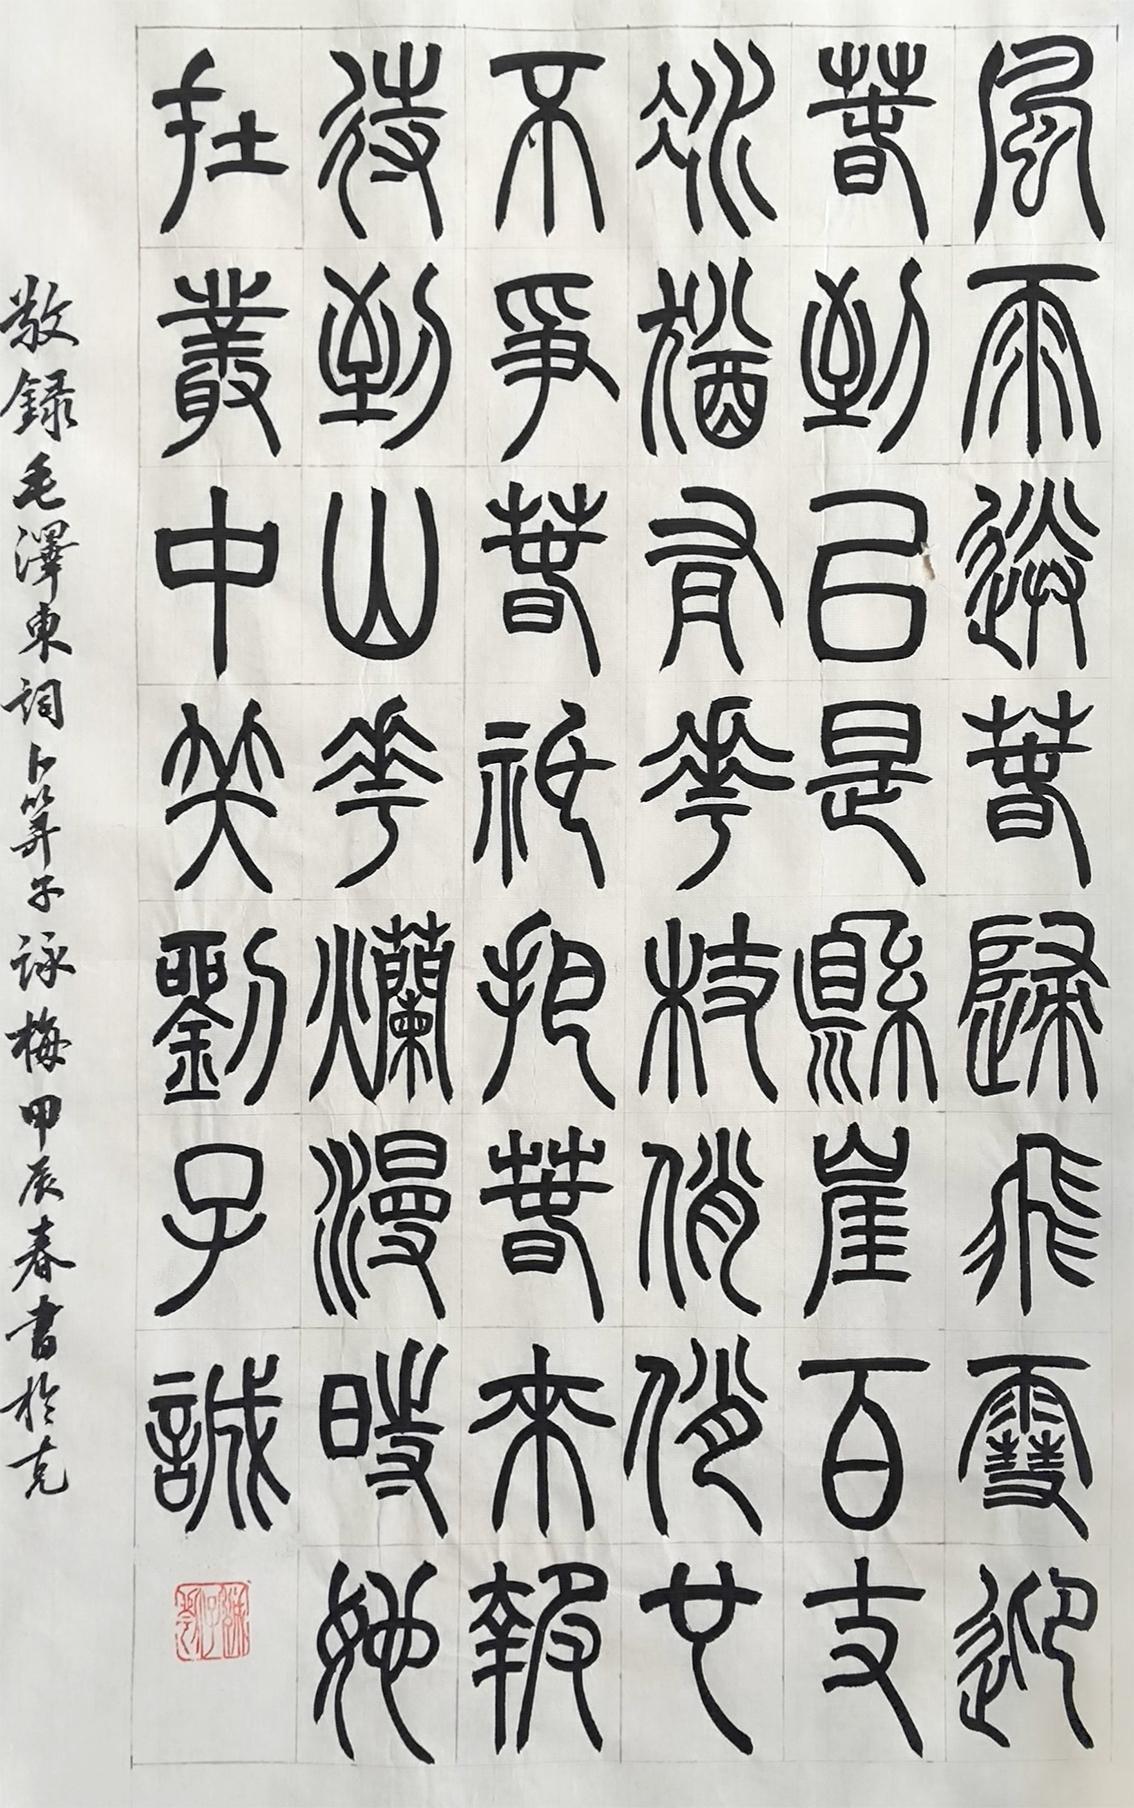 風雨送春歸飛雪迎
春到已是縣崖百丈
冰猶有花枝俏俏也
不爭春祇把春來報
待到山花爛漫時她
在叢中笑劉子誠
敬録毛澤東詞卜算子詠梅甲辰春書於克